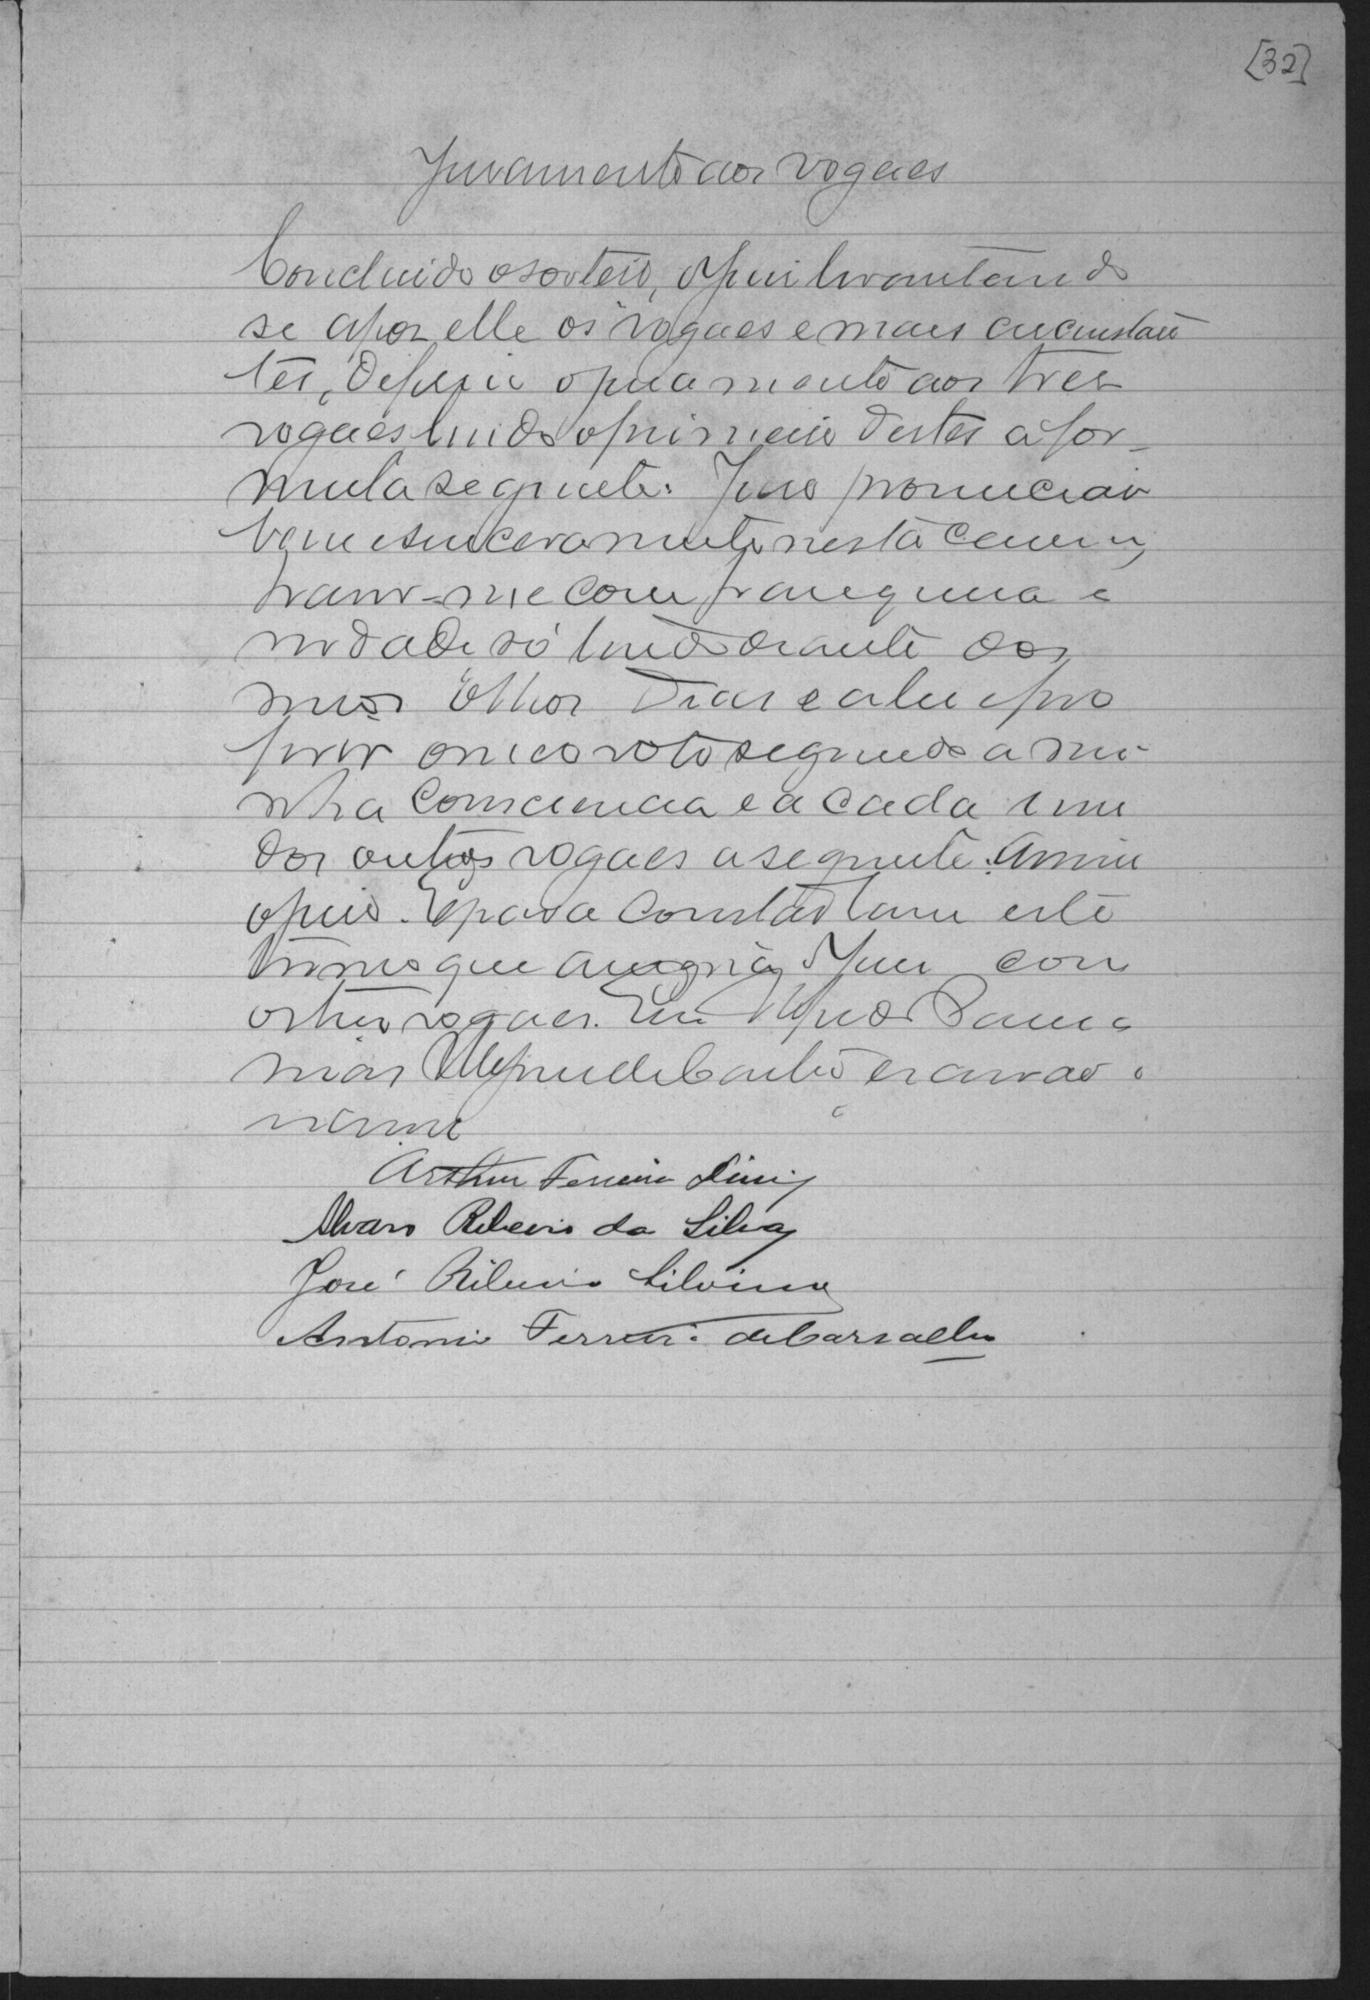 [32]
Juramento aos vogaes
Concluido o sorteio, o Juiz levantando
se apos elle os vogaes e mais circunstan
tes, deferiu o juramento aos tres
vogaes lendo o primeiro destes a for-
mula seguinte: Juro pronunciar
bem e sinceramente nesta causa,
haver-me com franqueza e
verdade só tendo diante dos
meus olhos Deus e a lei e pro
ferir o meu voto segundo a mi-
nha consciencia e a cada um
dos outros vogaes a seguinte: Assim
o juro. E para constar lavrei este
termo que assigna o Juiz com
os tres vogaes. Eu
escrivão o
Arthur Ferreira Diniz
Alvaro Ribeiro da Silva
José Ribeiro
Antonio Ferreira de Carvalho